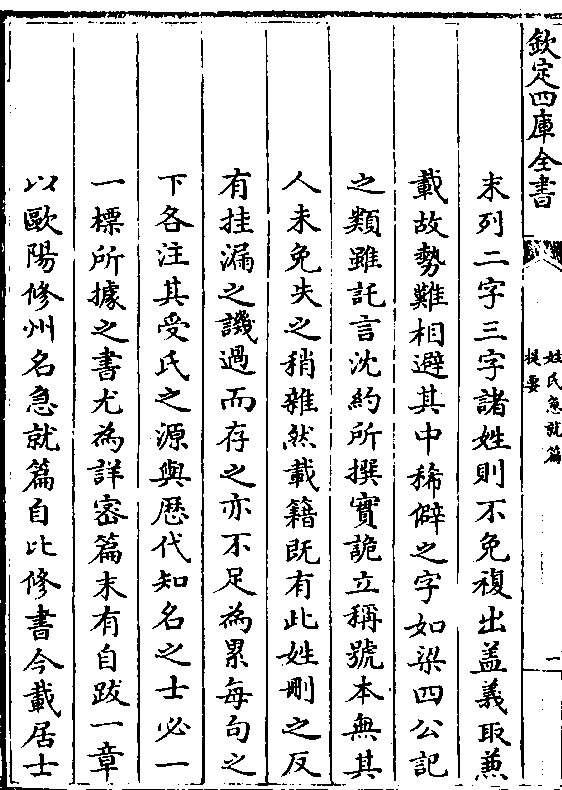 欽定四庫全書
姓氏急就篇
提要
一
末列二字三字諸姓則不免複出盖義取兼
載故勢難相避其中稀僻之字如梁四公記
之類雖託言沈約所撰實詭立稱號本無其
人未免失之稍雜然載籍既有此姓刪之反
有挂漏之譏過而存之亦不足為累每句之
下各注其受氏之源與歴代知名之士必一
一標所據之書尤為詳密篇末有自跋一章
以歐陽修州名急就篇自比修書今載居士